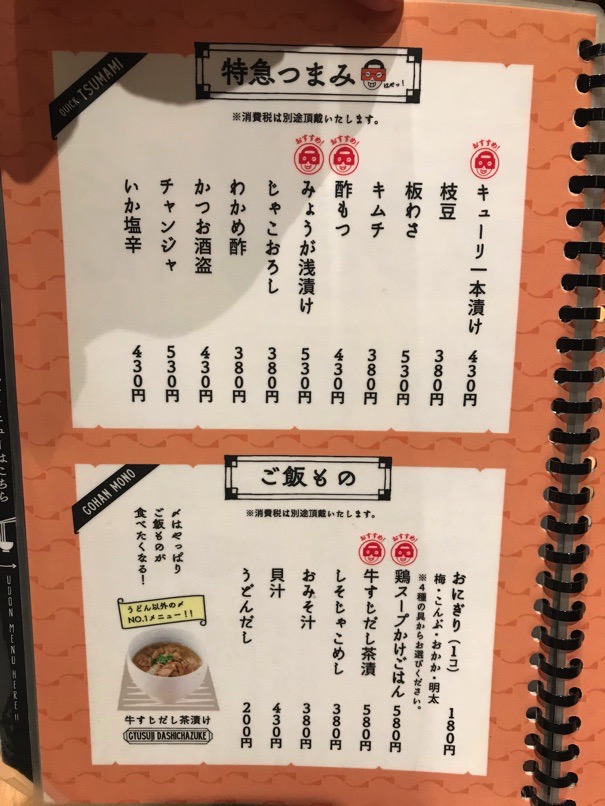 QUICK TSUMAMI
特急つまみ
はやっ!
※消費税は別途頂戴いたします。
おすすめ!
キューリ一本漬け 430円
枝豆 380円
板わさ 530円
キムチ 380円
おすすめ!
酢もつ 430円
おすすめ!
みょうが浅漬け 530円
じゃこおろし 380円
わかめ酢 380円
かつお酒盗 430円
チャンジャ 530円
いか塩辛 430円
GOHAN MONO
ご飯もの
※消費税は別途頂戴いたします。
おにぎり(1コ) 180円
梅・こんぶ・おかか・明太
※4種の具からお選びください。
おすすめ!
鶏スープかけごはん 580円
おすすめ!
牛すじだし茶漬 580円
しそじゃこめし 380円
おみそ汁 380円
貝汁 430円
うどんだし 200円
〆はやっぱり
ご飯ものが
食べたくなる!
うどん以外の〆
NO.1メニュー!!
牛すじだし茶漬け
GYUSUJI DASHICHAZUKE
ニューはこちら
UDON MENU HERE!!